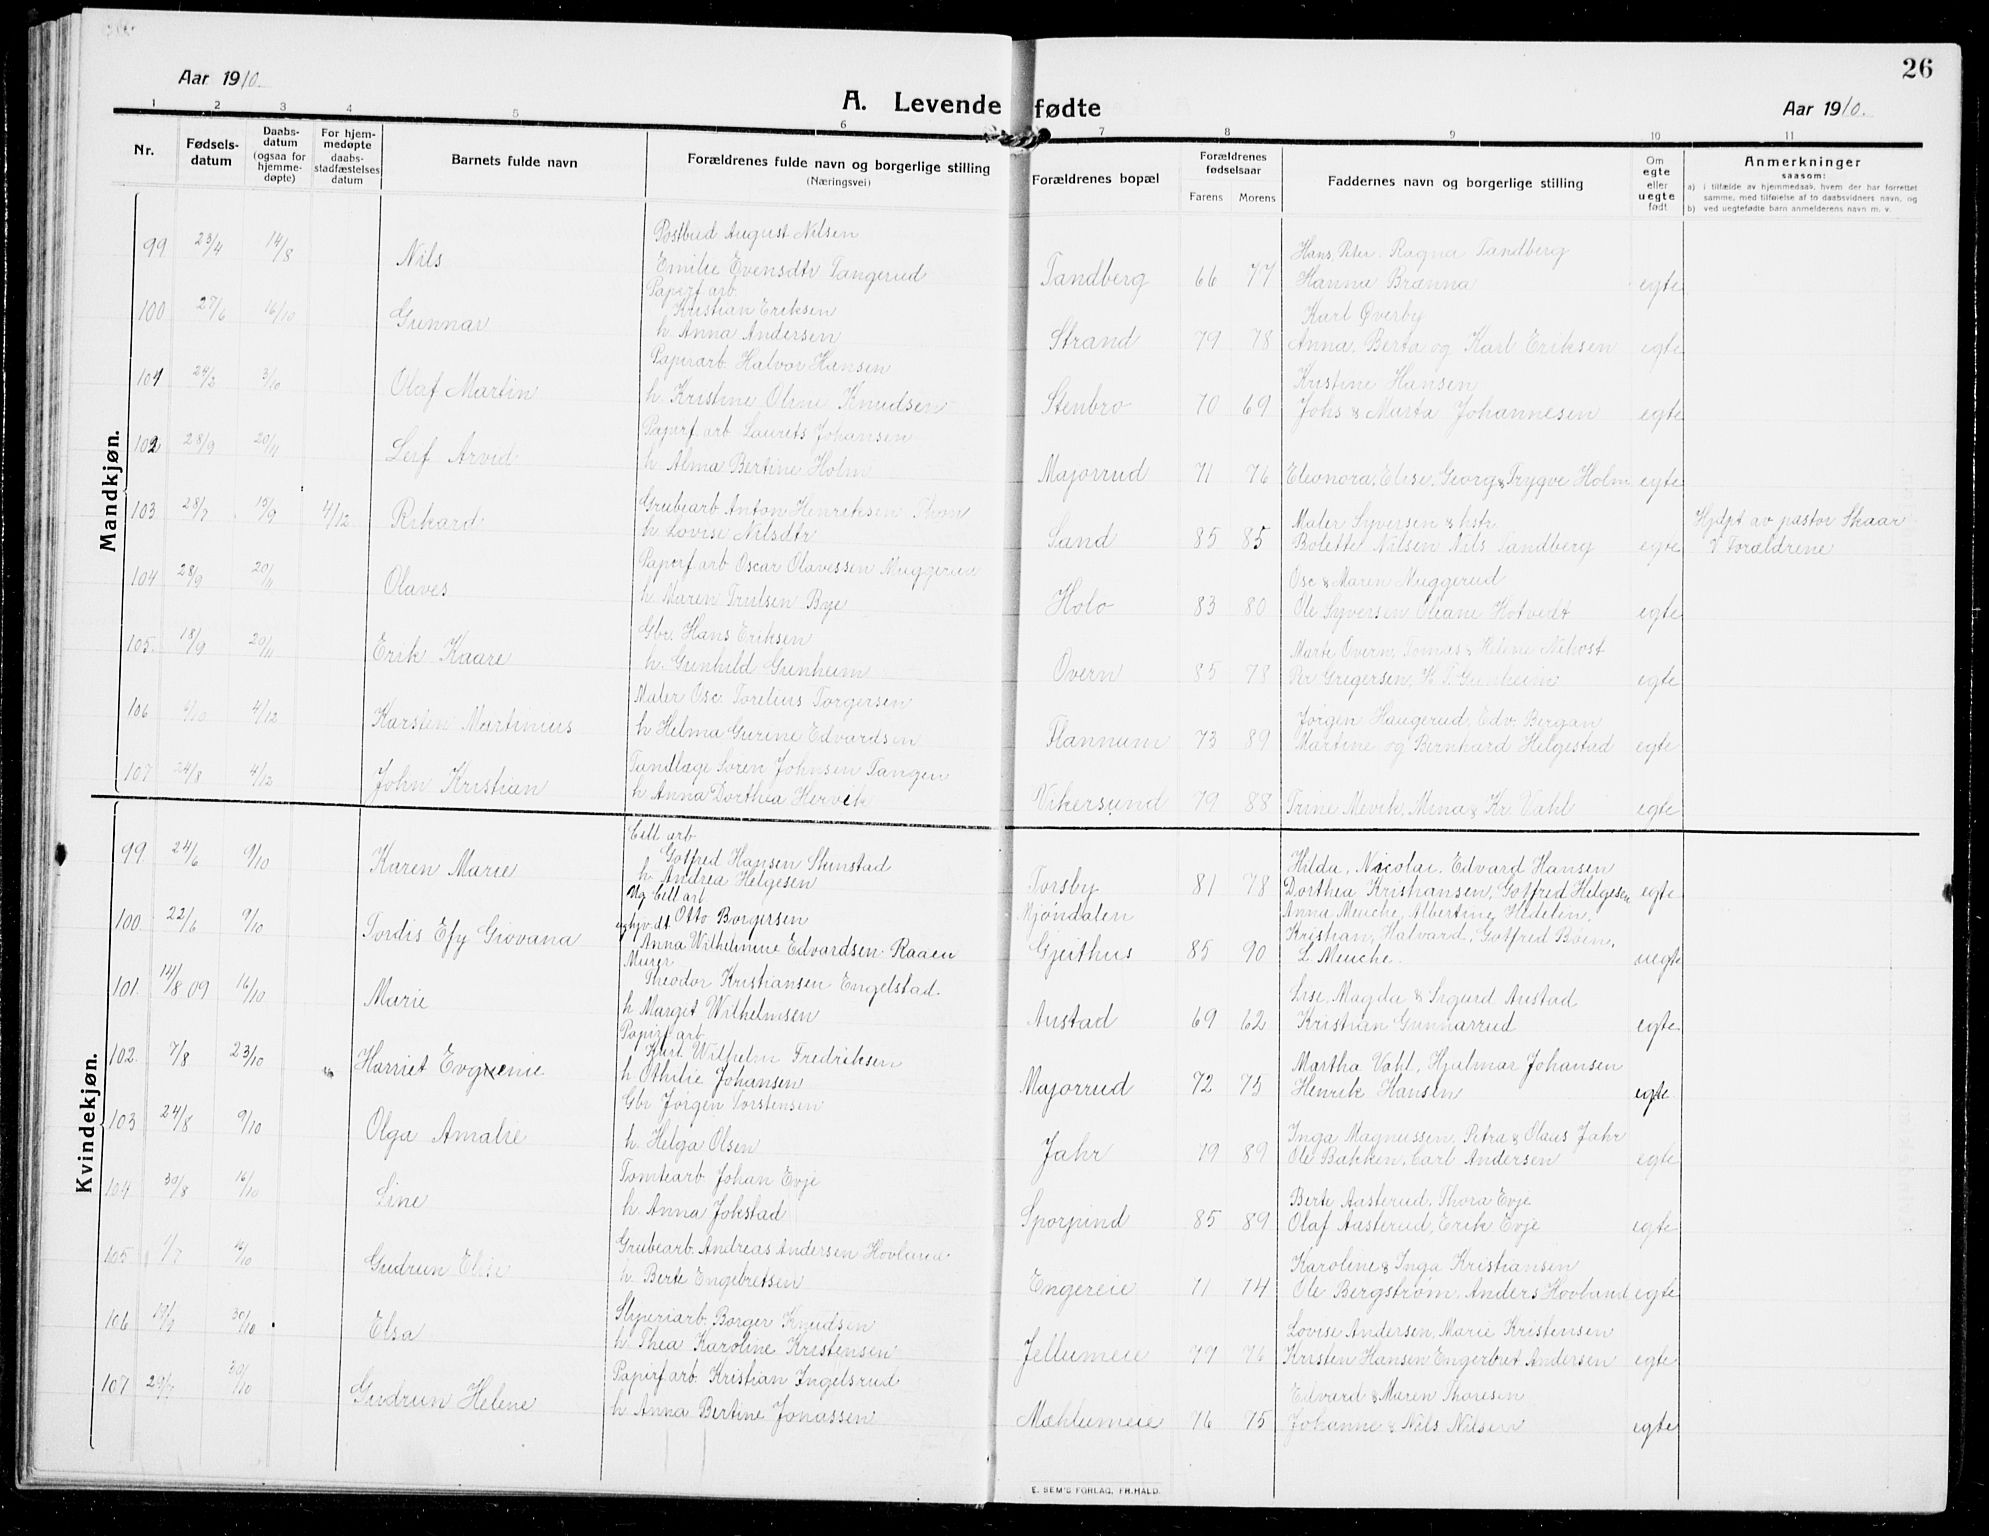 26
Aar 1910.
A. Levende fødte
Aar 1910.
1 2 3 4 5 6 7 8 9 10 11
Nr.
Fødsels-
datum
Daabs-
datum
(ogsaa for
hjemme-
døpte)
For hjem-
medøpte
daabs-
stadfæstelses
datum
Barnets fulde navn
Forældrenes fulde navn og borgerlige stilling
(Næringsvei)
Forældrenes bopæl
Forældrenes
fødselsaar
Farens Morens
Faddernes navn og borgerlige stilling
Om
egte
eller
uegte
født
Anmerkninger
saasom:
a) i tilfælde av hjemmedaab, hvem der har forrettet
samme, med tilføielse af to daabsvidners navn, og
b) ved uegtefødte barn anmelderens navn m. v.
Mandkjøn.
Postbud August Nilsen Hans Peter. Ragna Tandberg
99 23/4 14/8 Nils Emilie Evensdtr Tangerud Tandberg 66 77 Hanna Brænna egte
Papirf arb.
Kristian Eriksen Karl Øverby
100 27/6 16/10 Gunnar h. Anna Andersen Strand 79 78 Anna, Berta og Karl Eriksen egte
Papirarb. Halvor Hansen Kristine Hansen
101 24/2 3/10 Olaf Martin h. Kristine Oline Knudsen Stenbro 70 69 Johs & Marta Johannesen egte
Papirf arb Laurets Johansen
102 28/9 20/11 Leif Arvid h. Alma Bertine Holm Majorrud 71 76 Eleonora, Elise, Georg & Trygve Holm egte
Grubearb Anton Henriksen Thon Maler Syversen & hstr. Hjdpt av pastor Skaar
103 28/7 15/9 4/12 Rikard h. Lovise Nilsdtr Sand 85 85 Bolette Nilsen Nils Tandberg egte Forældrene
Papirf arb Oscar Olavessen Muggerud Osc & Maren Muggerud
104 28/9 20/11 Olaves h. Maren Trulsen Bye Holo 83 80 Ole Syversen Oliane Hotvedt egte
Gbr. Hans Eriksen Marte Overn, Tomas & Helene
105. 18/9 20/11 Erik Kaare h. Gunhild Gunheim Overn 85 78 Per Gregersen, K. T. Gunheim egte
Maler Osc. Torelius Torgersen Jørgen Haugerud, Edv. Bergan
106 4/12 Karsten Martinius h Helma Gurine Edvardsen Flannum 73 89 Martine og Bernhard Helgestad egte
Tandlæge Søren Johnsen Tangen
107 24/8 4/12 John Kristian h Anna Dorthea Hervik Vikersund 79 88 Trine Mevik, Mina & Kr. Vahl egte
Kvindekjøn.
Cell arb
Gotfred Hansen Stenstad Hilda, Nicolai. Edvard Hansen
99. 24/6 9/10 Karen Marie h. Andrea Helgesen Torsby 81 78 Dorthea Kristiansen, Gotfred Helgesen egte
Ug Cell arb Anna Meuche, Albertine Hedelen,
Otto Borgersen Mjøndalen Kristian, Halvard, Gotfred Bøen,
100. 22/6 9/10 Tordis Efy Giovana Anna Wilhelmine Edvardsen Raaen Gjeithus 85 90 L Meuche. uegte
Murer
Theodor Kristiansen Engelstad. Lise. Magda & Sigurd Austad
101. 14/8 09 16/10 Marie h Margit Wilhelmsen Austad 69 62 Kristian Gunnarrud egte
Papirf arb
Karl Wilhelm Fredriksen Martha Vahl, Hjalmar Johansen
102. 7/8 23/10 Harriet Evgxenie h Othilie Johansen Majorrud 72 75 Henrik Hansen egte
Gbr Jørgen Torstensen Inga Magnussen, Petra & Claus Jahr
103 24/8 9/10 Olga Amalie h. Helga Olsen Jahr 79 89 Ole Bakken, Carl Andersen egte
Tomtearb Johan Evje Berte Aasterud, Thora Evje
104 30/8 16/10 Line h. Anna Jokstad Sporpind 85 89 Olaf Aasterud, Erik Evje egte
Grubearb. Andreas Andersen Hovland Karoline & Inga Kristiansen
105. 1/7 Gudrun Elise h. Berte Engebretsen Engereie 71 74 Ole Bergstrøm, Anders Hovland egte
Sliperiarb. Borger Knudsen Lovise Andersen, Marie Kristensen
106 19/7 30/10 Elsa h Thea Karoline Kristensen Jellumeie 77 76 Kristen Hansen Engerbret Andersen egte
Papirf arb. Kristian Ingelsrud Edvard & Maren Thoresen
107 29/7 30/10 Gudrun Helene h Anna Bertine Jonassen Mæhlumeie 76 75 Johanne & Nils Nilsen egte
E. SEM'S FORLAG, FR.HALD.